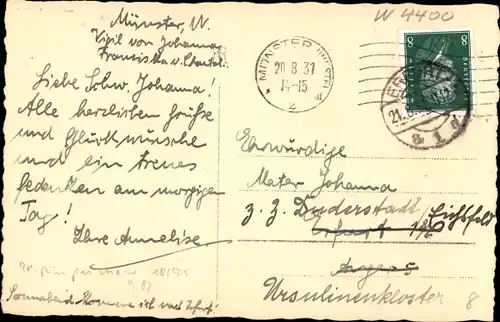 W 4400
Münster, W.
Vigil von Johanna
Franziska v. Chantal.
Liebe Schw. Johanna.
Alle herzlichen Grüße
und Glückwünsche
und ein treues
Gedenken am morgigen
Tag!
Ihre Anneliese.
Sonnabend komme ich nach Erfurt!
MÜNSTER (WESTF)
20.8.31
14-15
2
8 8
ERFURT
21.8.
a 1 d
Ehrwürdige
Mater Johanna
z. Z. Duderstadt/Eichsfeld
Erfurt
Anger 5
Ursulinenkloster
8